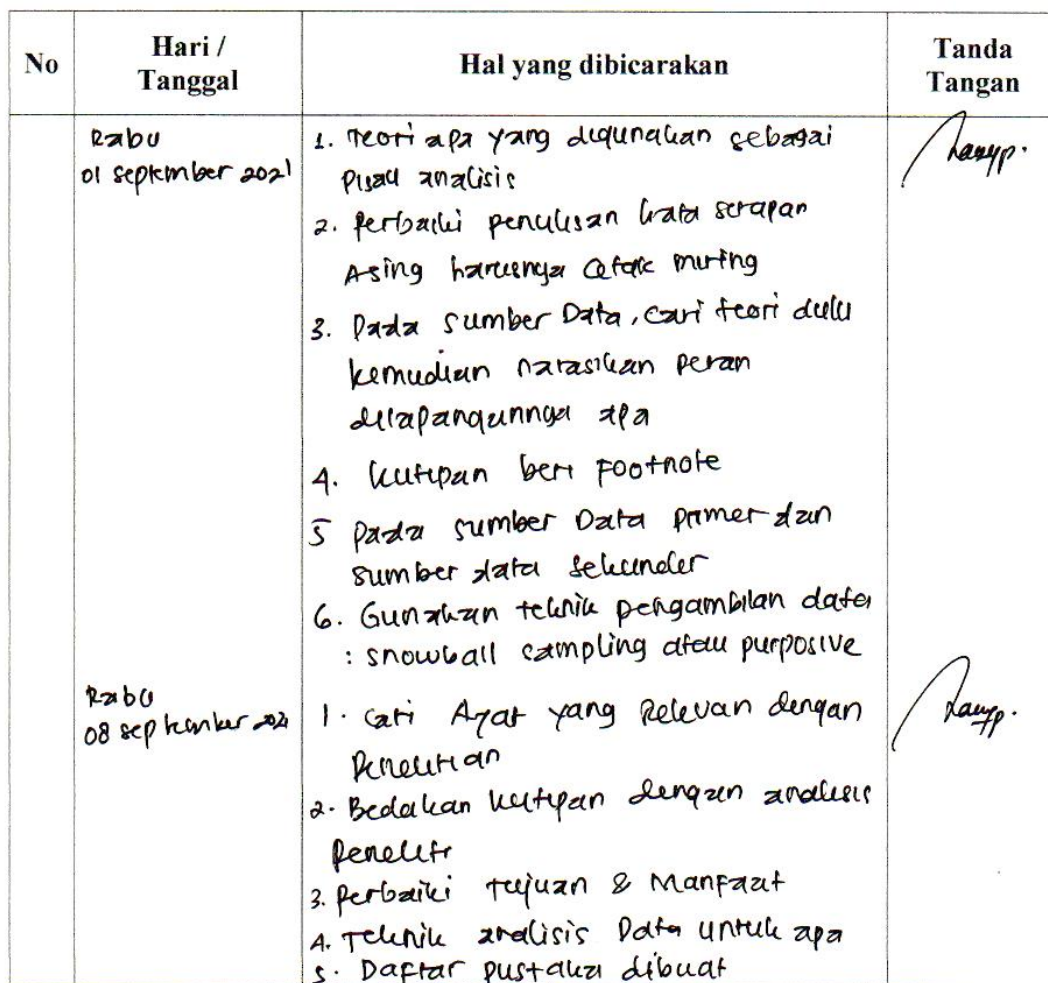 No
Hari /
Tanggal
Hal yang dibicarakan
Tanda
Tangan
Rabu
01 september 2021
1. Teori apa yang digunakan sebagai
pisau analisis
2. Perbaiki penulisan kata serapan
Asing harusnya cetak miring
3. Pada sumber Data, cari teori dulu
kemudian narasikan peran
dilapangannya apa
4. kutipan beri Footnote
5 pada sumber Data primer dan
sumber data sekunder
6. Gunakan teknik pengambilan data
: snowball sampling atau purposive
Rabu
08 september 2021
1. Cari Ayat yang Relevan dengan
Penelitian
2. Bedakan kutipan dengan analisis
Peneliti
3. Perbaiki tujuan & Manfaat
4. Teknik analisis Data untuk apa
5. Daftar pustaka dibuat